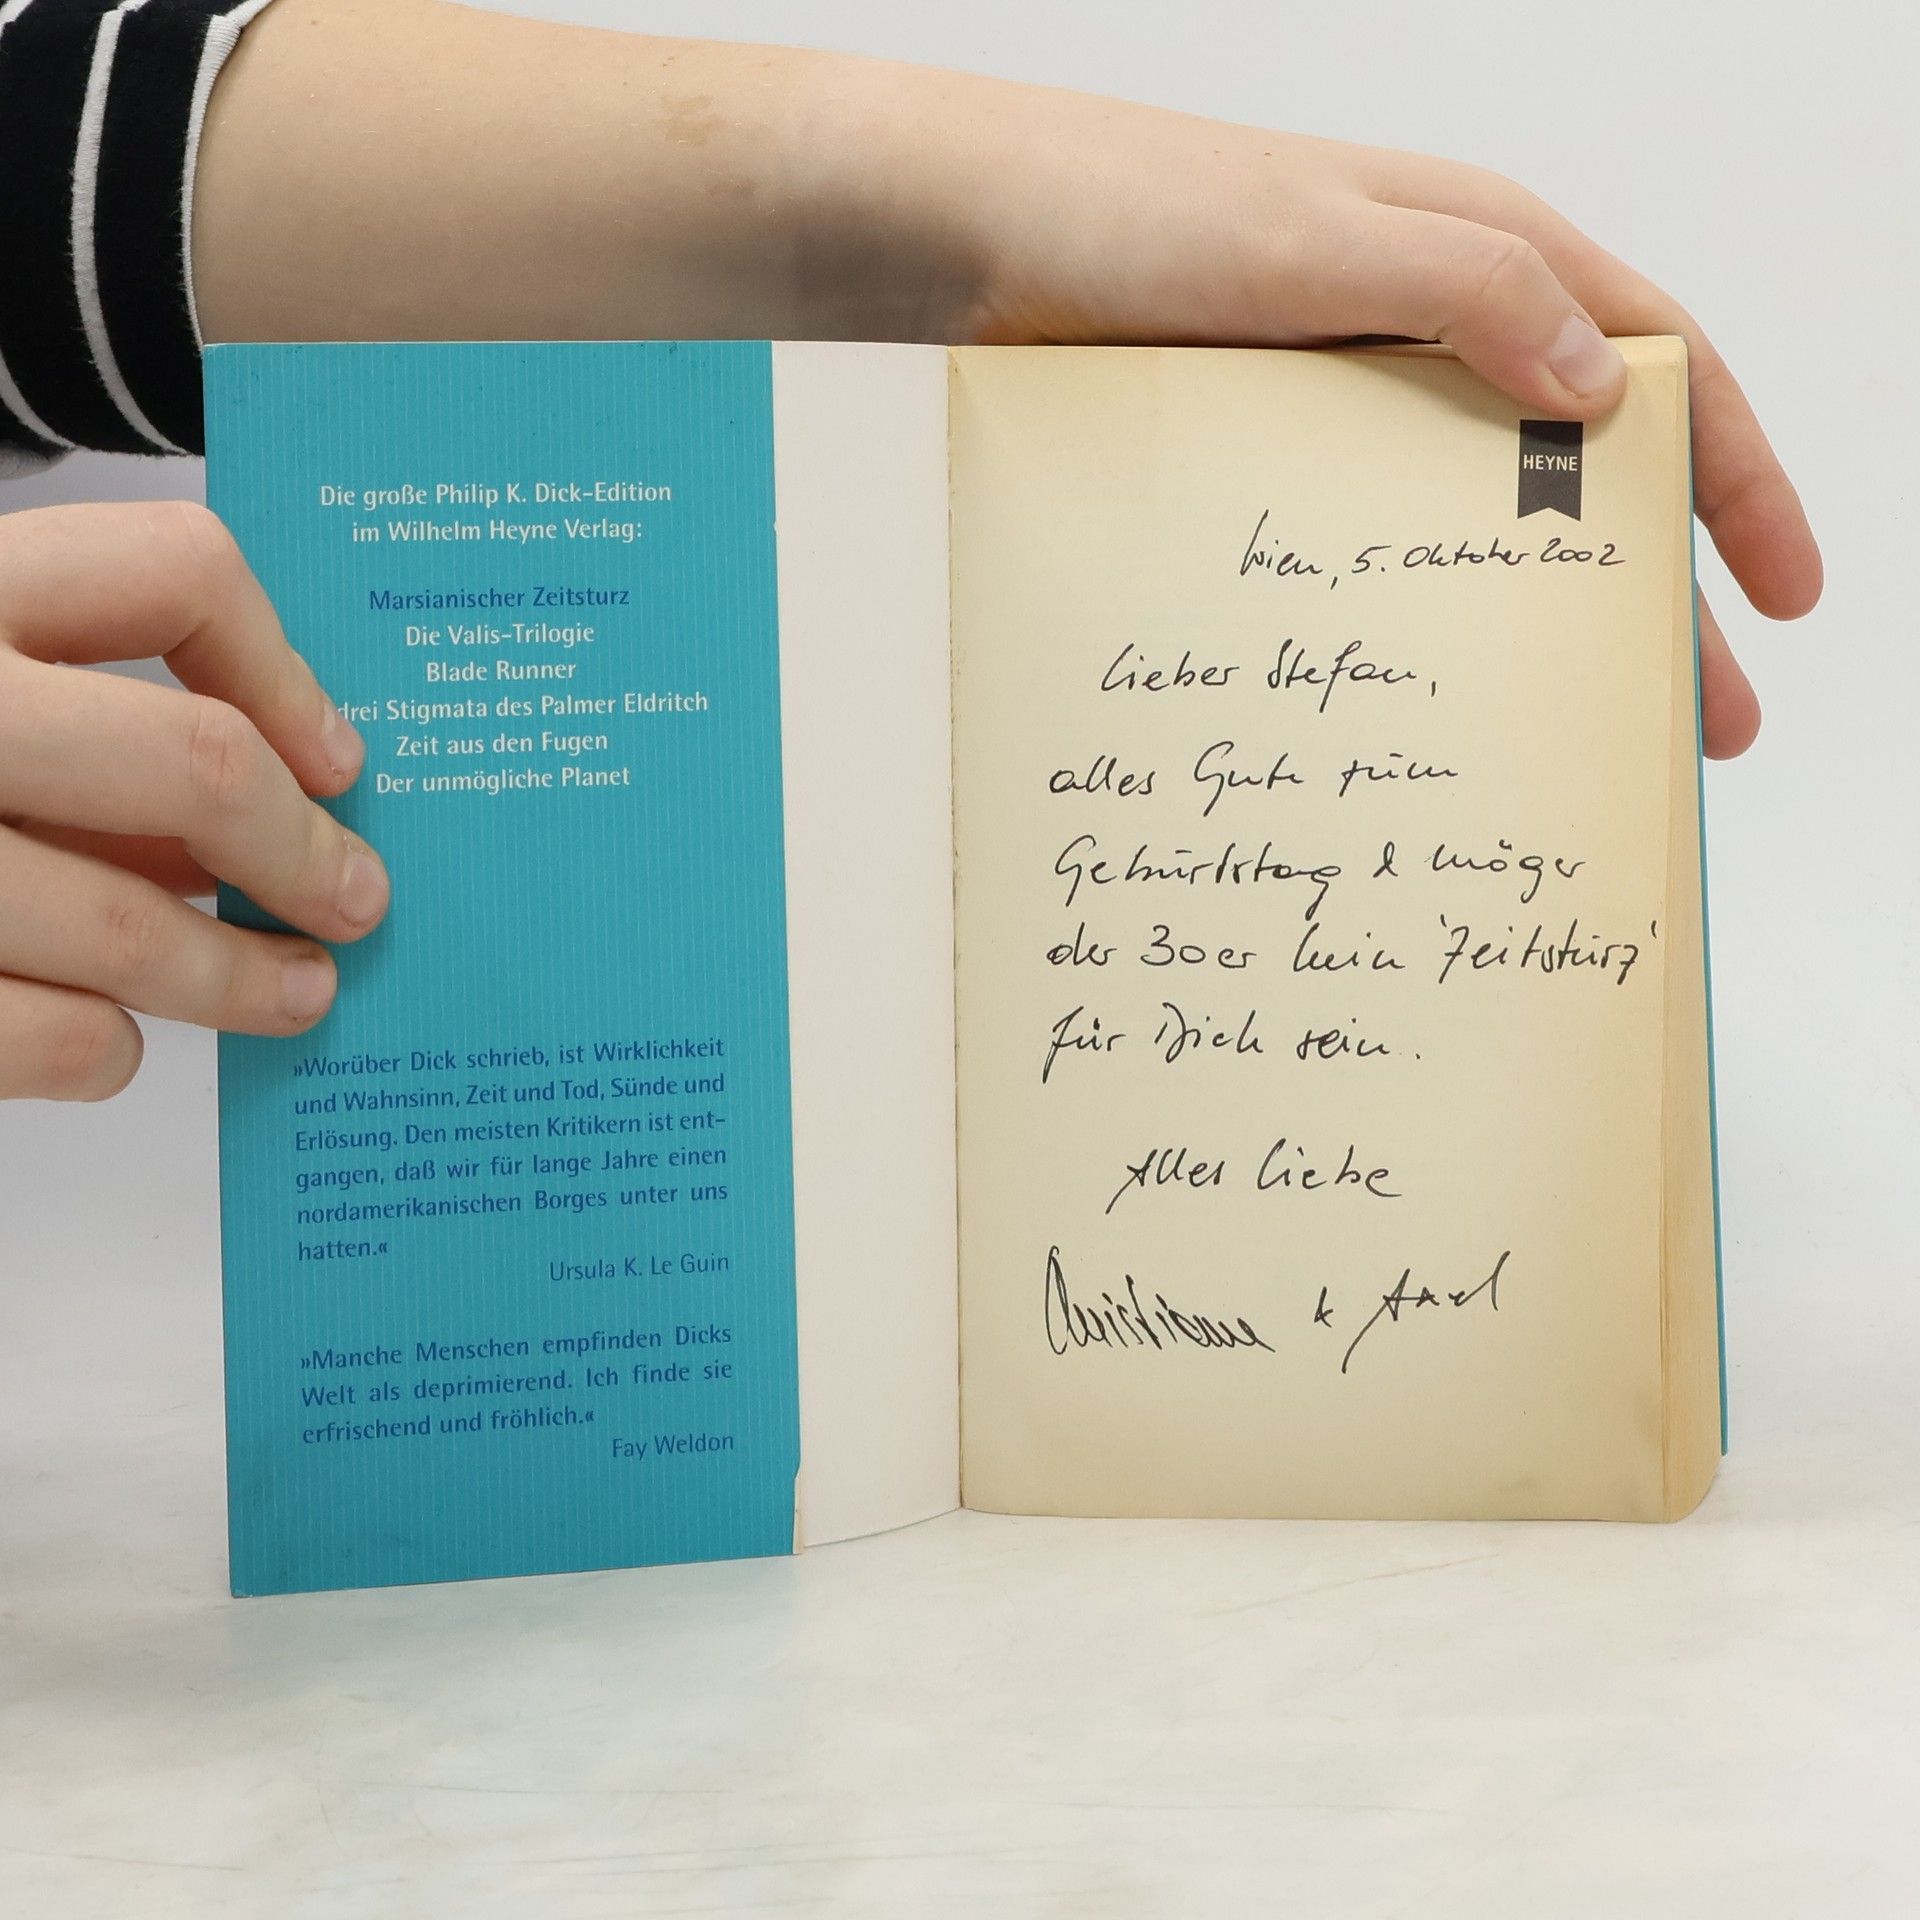 Die große Philip K. Dick-Edition
im Wilhelm Heyne Verlag:
Marsianischer Zeitsturz
Die Valis-Trilogie
Blade Runner
drei Stigmata des Palmer Eldritch
Zeit aus den Fugen
Der unmögliche Planet
»Worüber Dick schrieb, ist Wirklichkeit
und Wahnsinn, Zeit und Tod, Sünde und
Erlösung. Den meisten Kritikern ist ent-
gangen, daß wir für lange Jahre einen
nordamerikanischen Borges unter uns
hatten.«
Ursula K. Le Guin
»Manche Menschen empfinden Dicks
Welt als deprimierend. Ich finde sie
erfrischend und fröhlich.«
Fay Weldon
HEYNE
Wien, 5. Oktober 2002
Lieber Stefan,
alles Gute zum
Geburtstag & möge
der 30er kein 'Zeitsturz'
für Dich sein.
Alles Liebe
Christiane & Axel